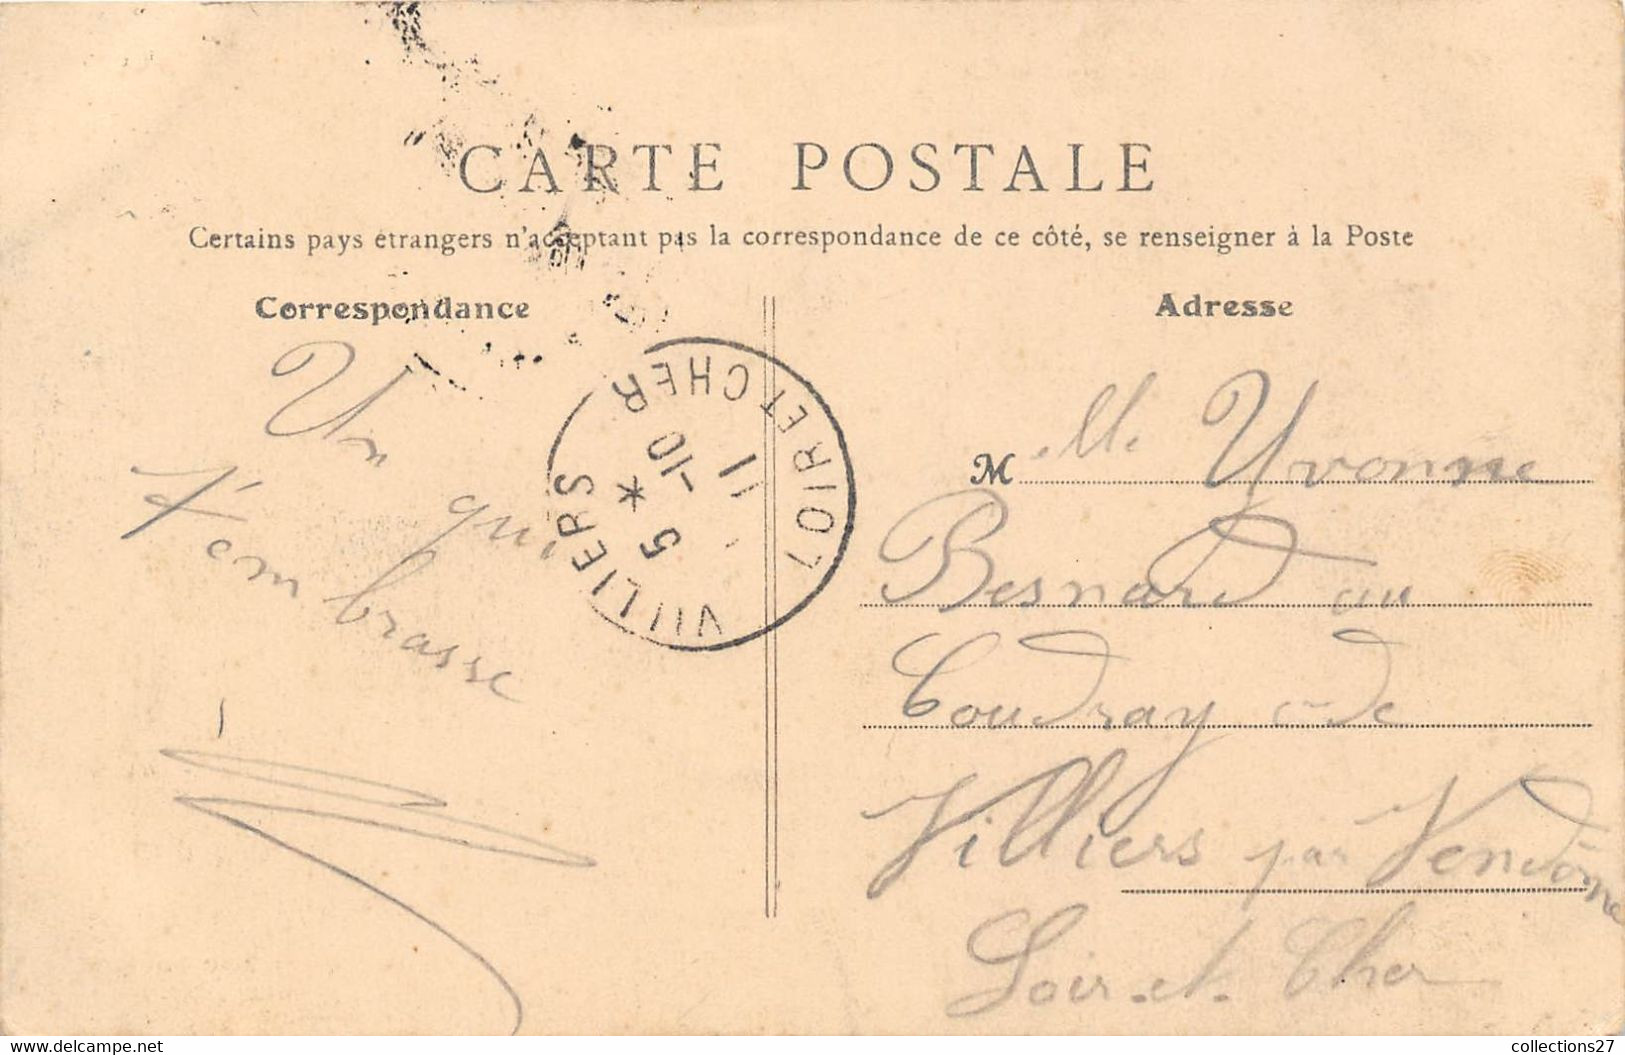 CARTE POSTALE
Certains pays étrangers n'acceptant pas la correspondance de ce côté, se renseigner à la Poste
Correspondance
Un qui
t'embrasse
VILLIERS * LOIR ET CHER
5 -10
11
Adresse
Mlle Yvonne
Besnard au
Coudray c-de
Villiers par Vendôme
Loir-et-Cher
collections27